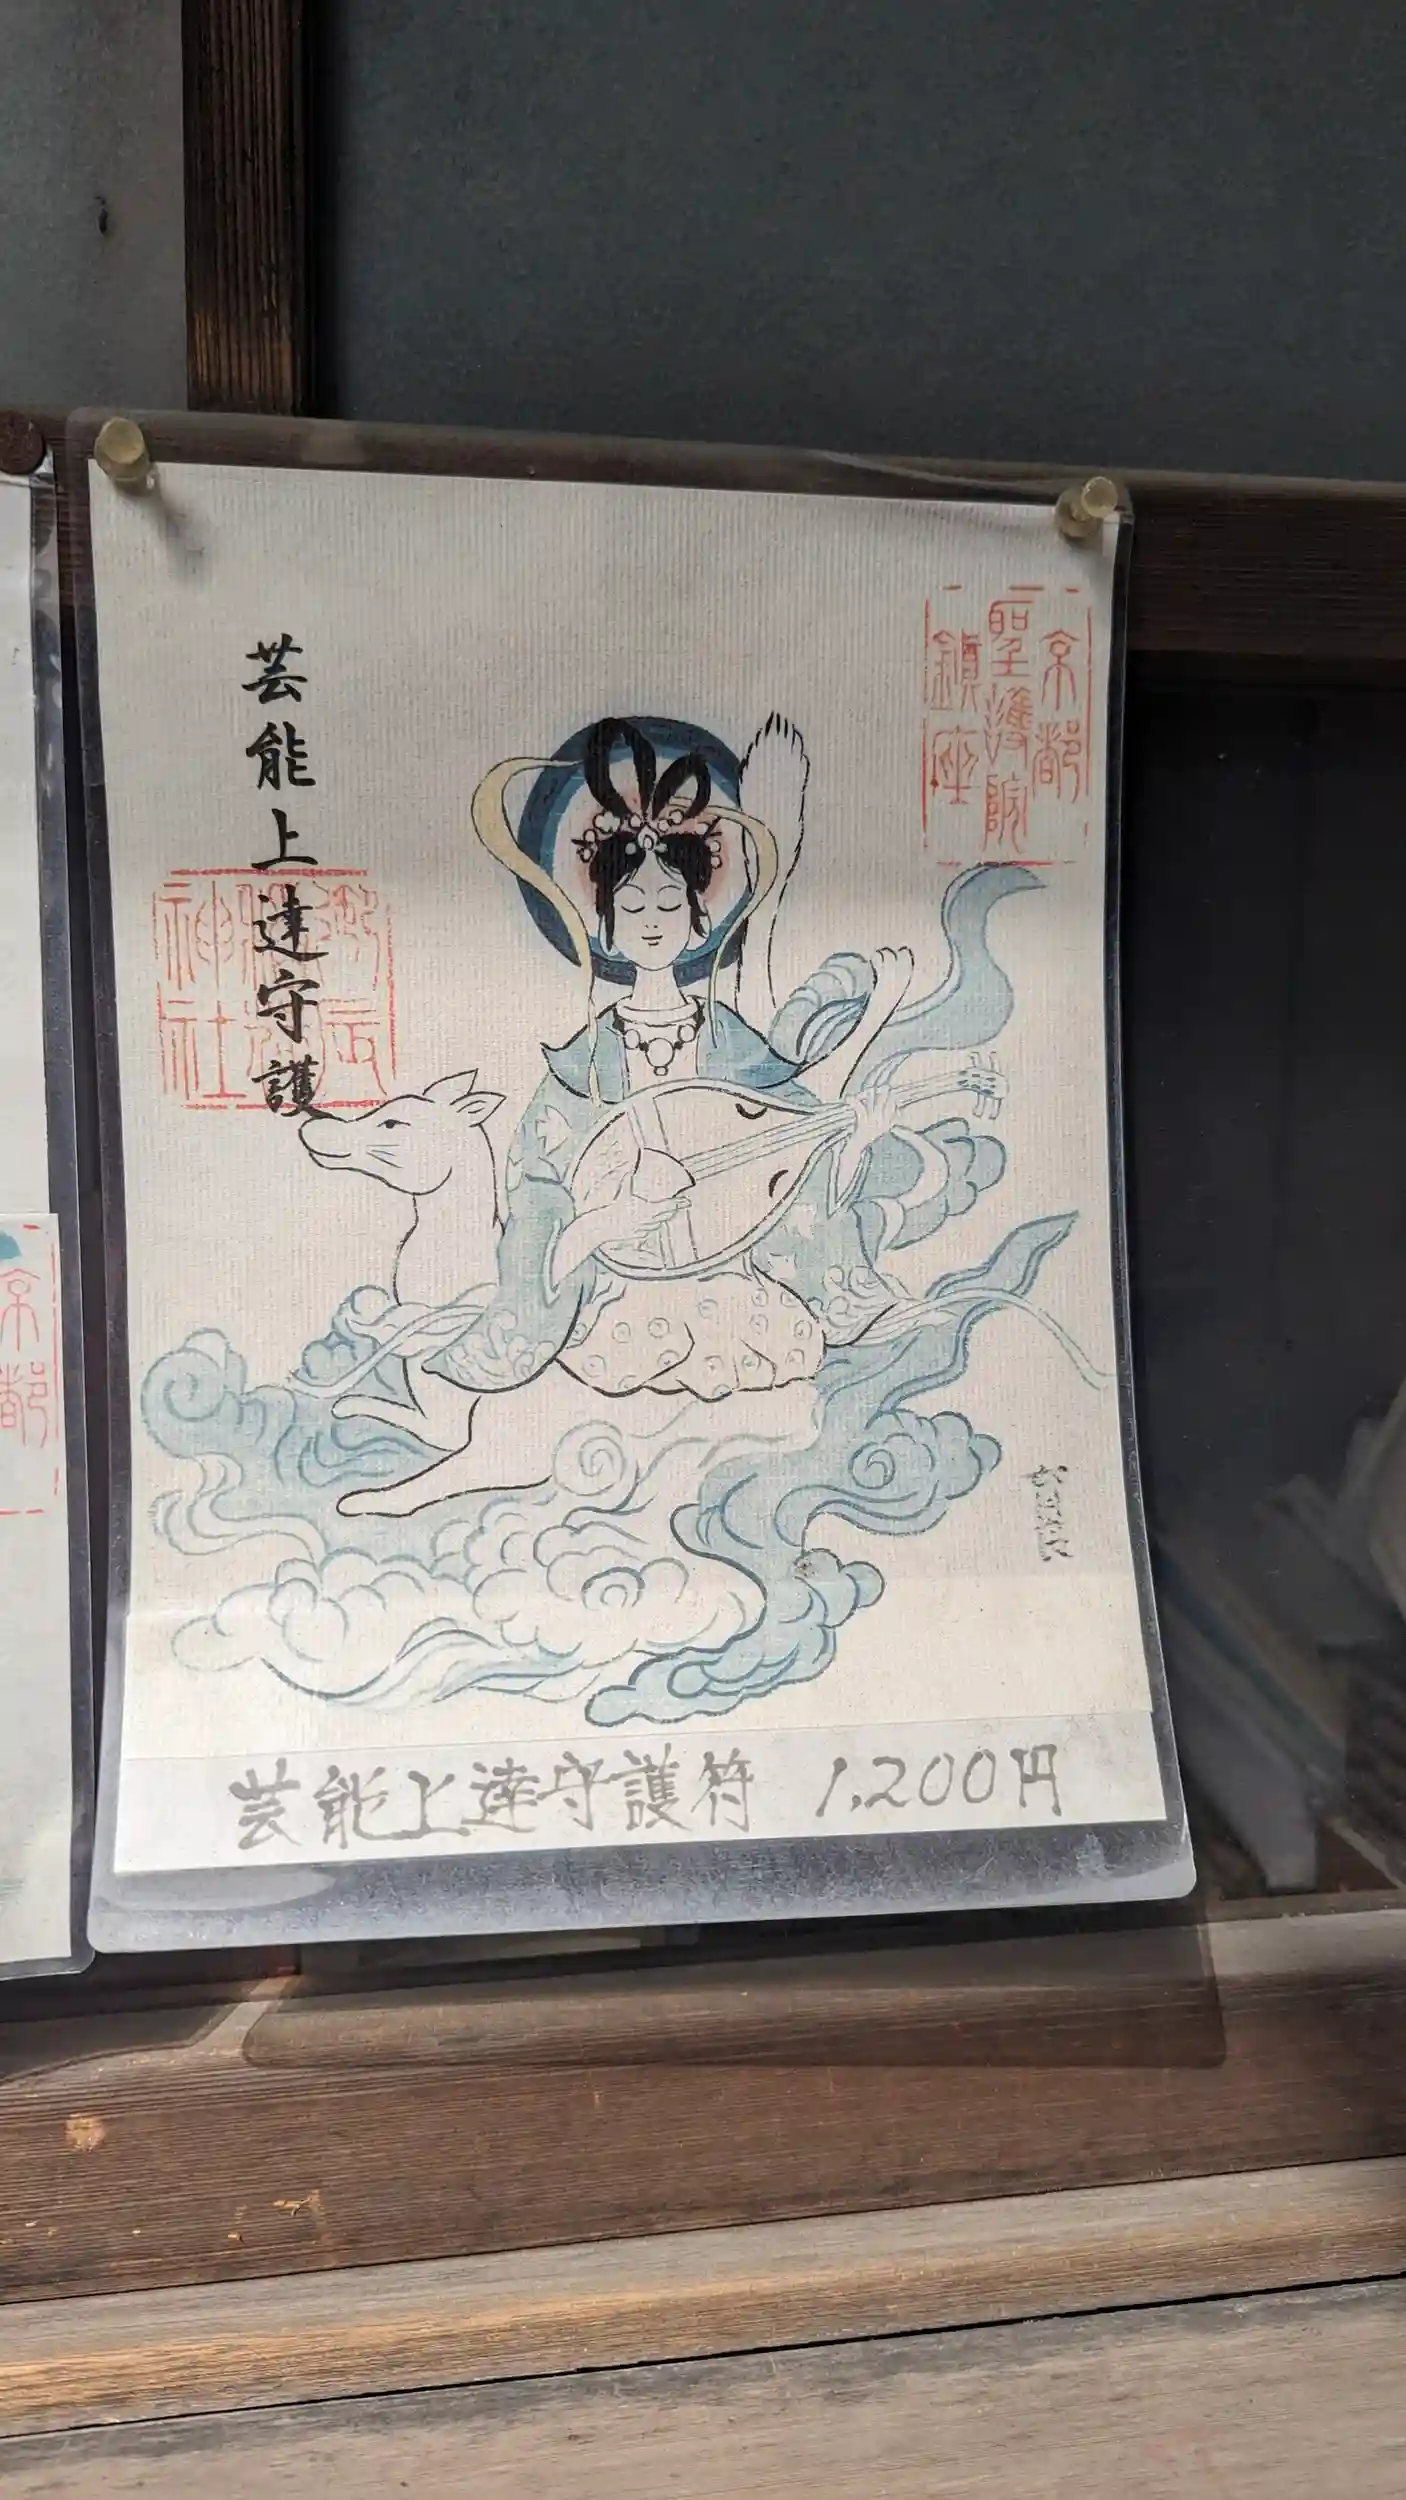 京都
聖護院
鎮座
芸能上達守護
神社
芸能上達守護符 1,200円
京都